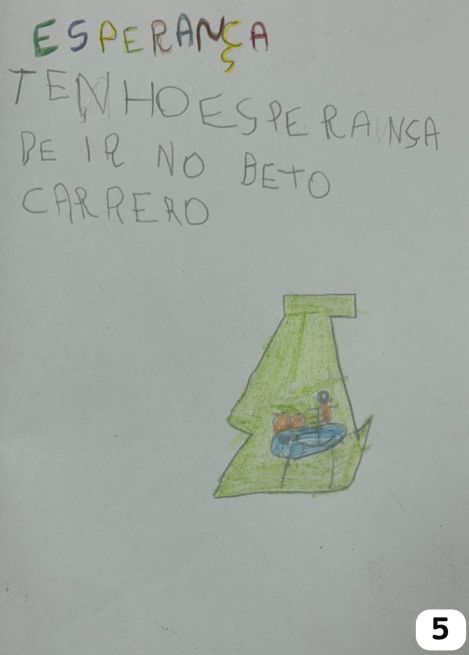 ESPERANÇA
TENHO ESPERANSA
DE IR NO BETO
CARRERO
5